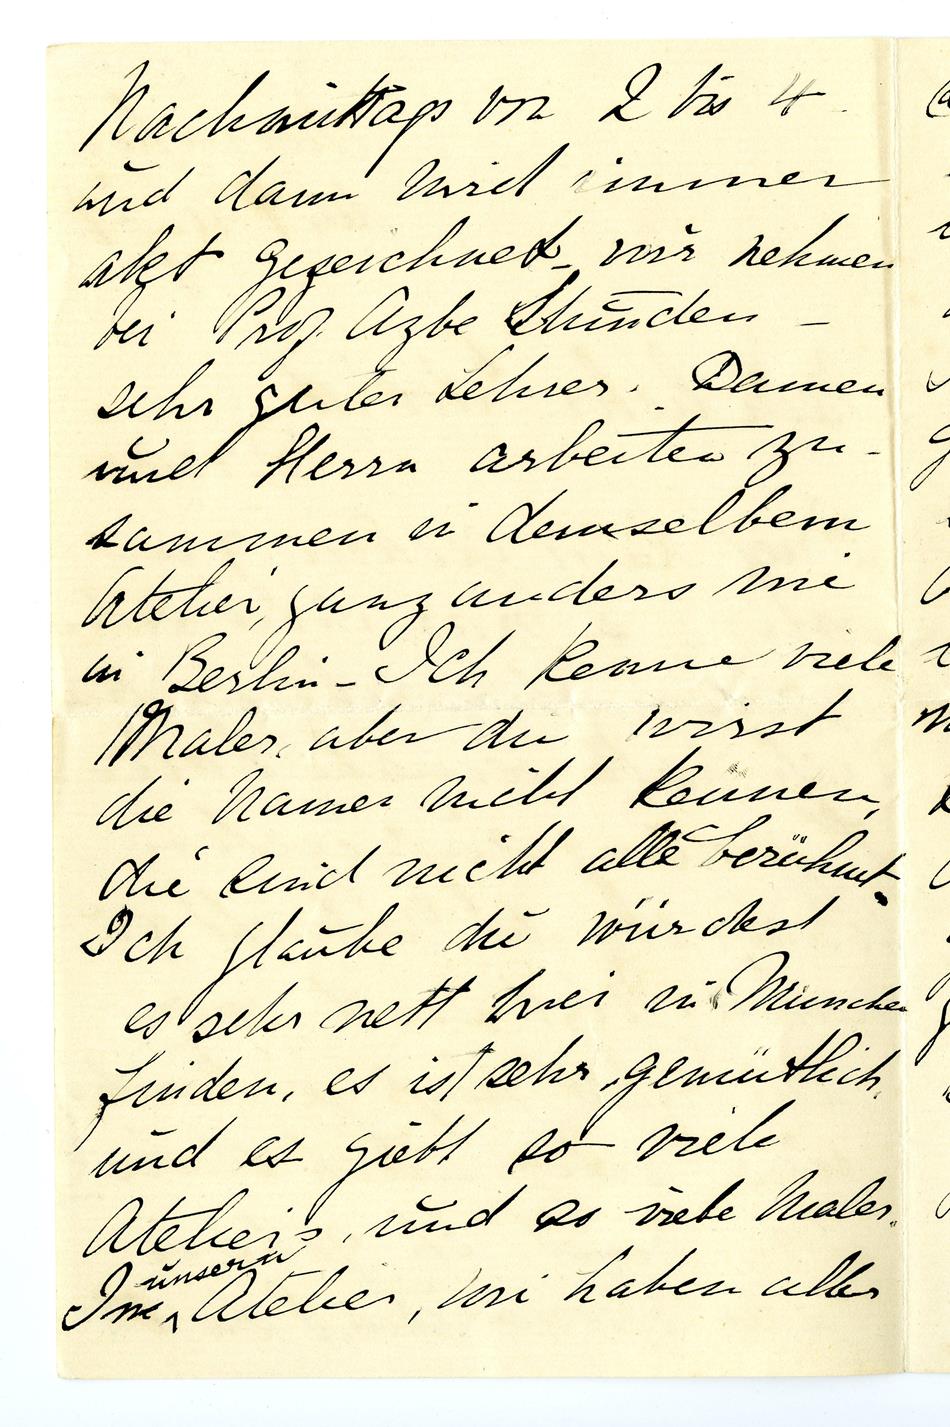 Nachmittags von 2 bis 4
und dann wird immer
akt gezeichnet – wir nehmen
bei Prof. Azbe Stunden –
sehr guter Lehrer. Damen
und Herrn arbeiten zu-
sammen in demselbem
Atelier, ganz anders wie
in Berlin – Ich kenne viele
Maler, aber du wirst
die Namen nicht kennen,
die sind nicht alle berühmt.
Ich glaube du würdest
es sehr nett hier in München
finden, es ist sehr gemütlich
und es giebt so viele
Ateliers, und so viele Maler.
unsern
Im Atelier, wir haben alle